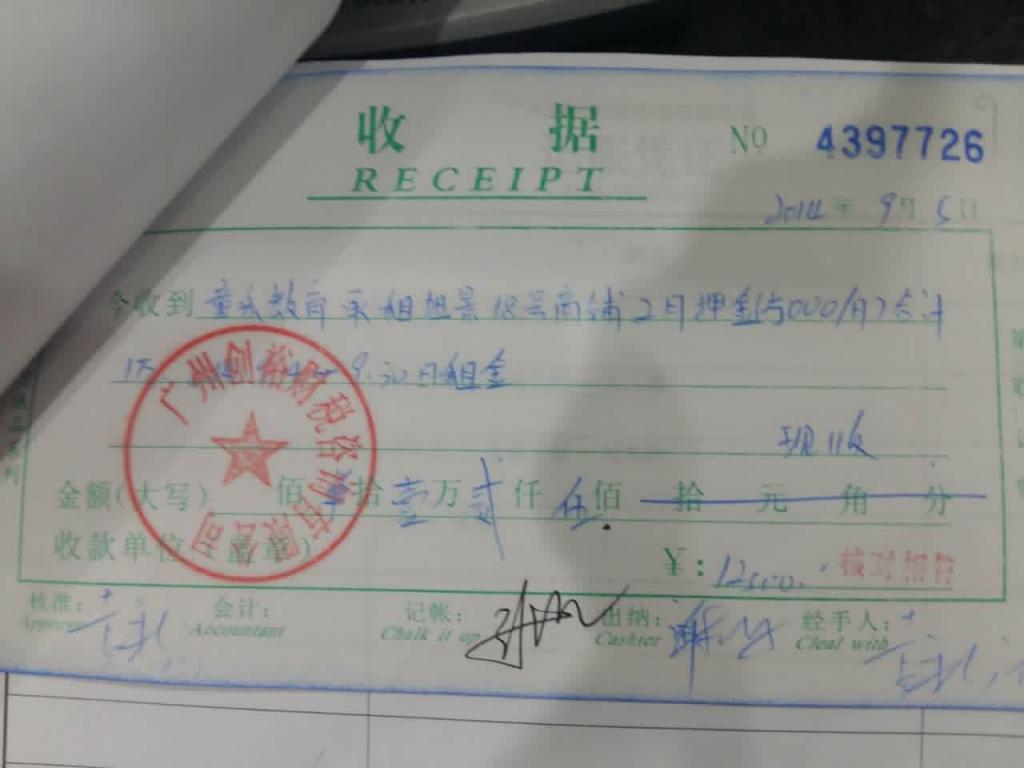 收 据
RECEIPT
№ 4397726
2014年9月5日
今收到 教育承租旭景18号商铺2月押金(5000/月)合计
9.30日租金
现收
金额(大写) 佰 拾壹万贰仟伍佰拾元角分
收款单位(盖章)
¥:12500. 核对相符
广州创裕财税咨询有限公司
核准: 会计: 记帐: 出纳: 经手人:
Approve Accountant Chalk it up Cashier Cleal with